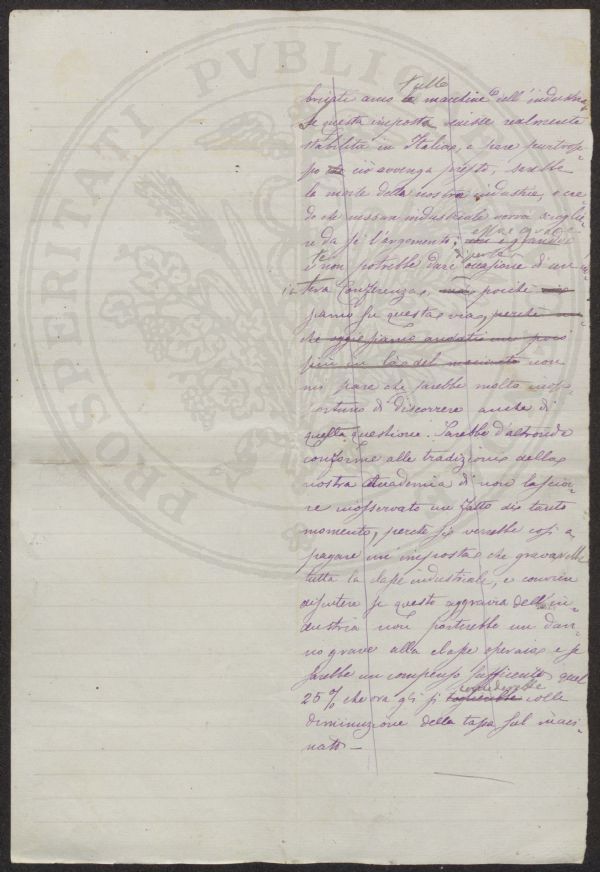 PROSPERITATI PVBLICAE
sulle
macchine dell'industria.
Se questa imposta venisse realmente
stabilita in Italia, e pare purtrop-
po ciò avvenga presto, sarebbe
la morte della nostra industria, e cre-
do che nessun industriale vorrà scoglie-
re da sé l'argomento;
e non potrebbe dare occasione di un'
tera Conferenza, poiché
siamo su questa via, perchè
se oggi siamo andati un poco
più in là del macinato non
mi pare che sarebbe molto inop-
portuno di discorrere anche di
quella questione. Sarebbe d'altronde
conforme alle tradizioni della
nostra Accademia di non lascia-
re inosservato un fatto di tanto
momento, perchè si verrebbe così a
pagare un'imposta che graverebbe
tutta la classe industriale, e convien
discutere se questo aggravio dell'in-
dustria non porterebbe un dan-
no grave alla classe operaia e se
sarebbe un compenso sufficiente quel
25% che ora gli si toglierebbe colla
diminuzione della tassa sul maci-
nato —